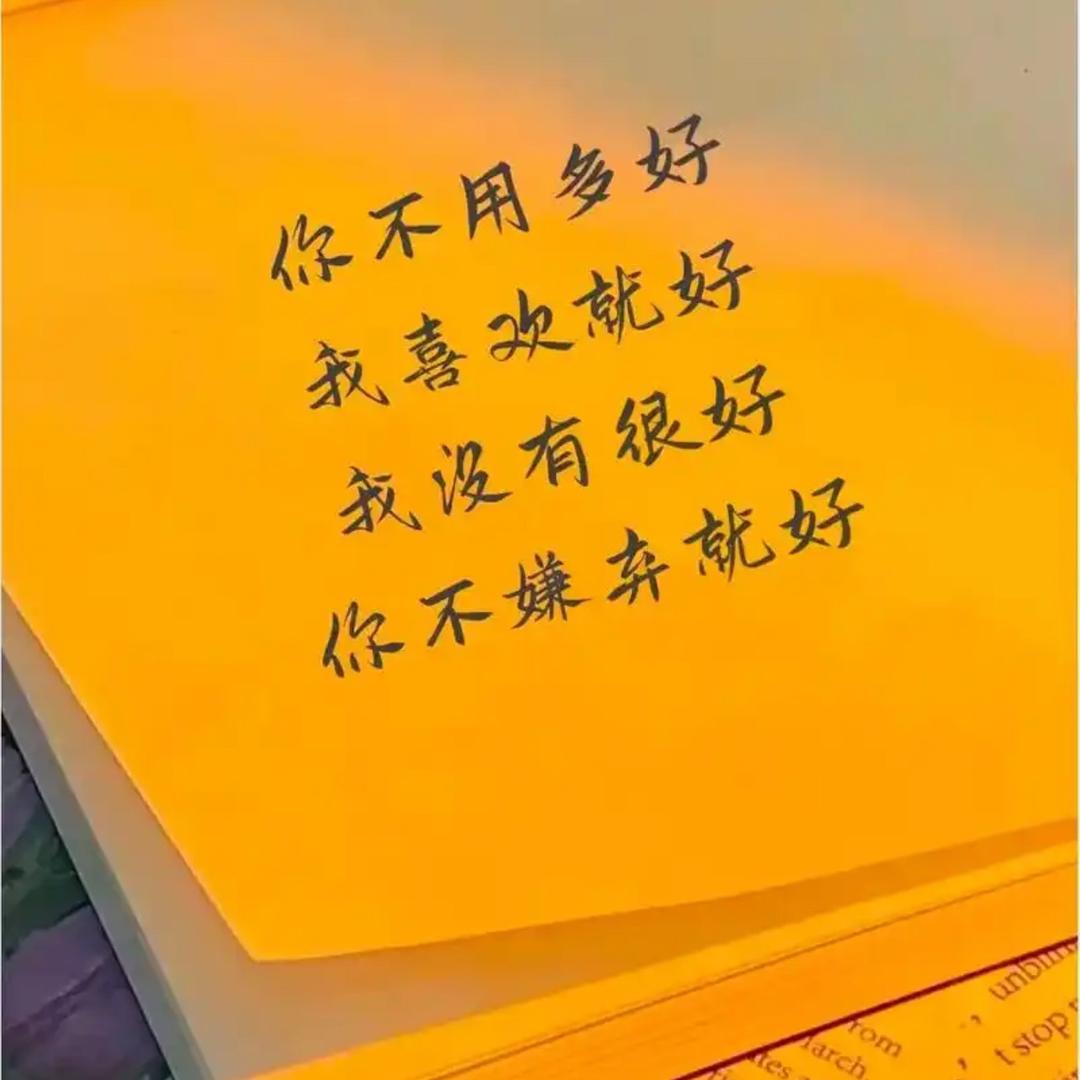 你不用多好
我喜欢就好
我没有很好
你不嫌弃就好
unbli
rom
t stop
larch